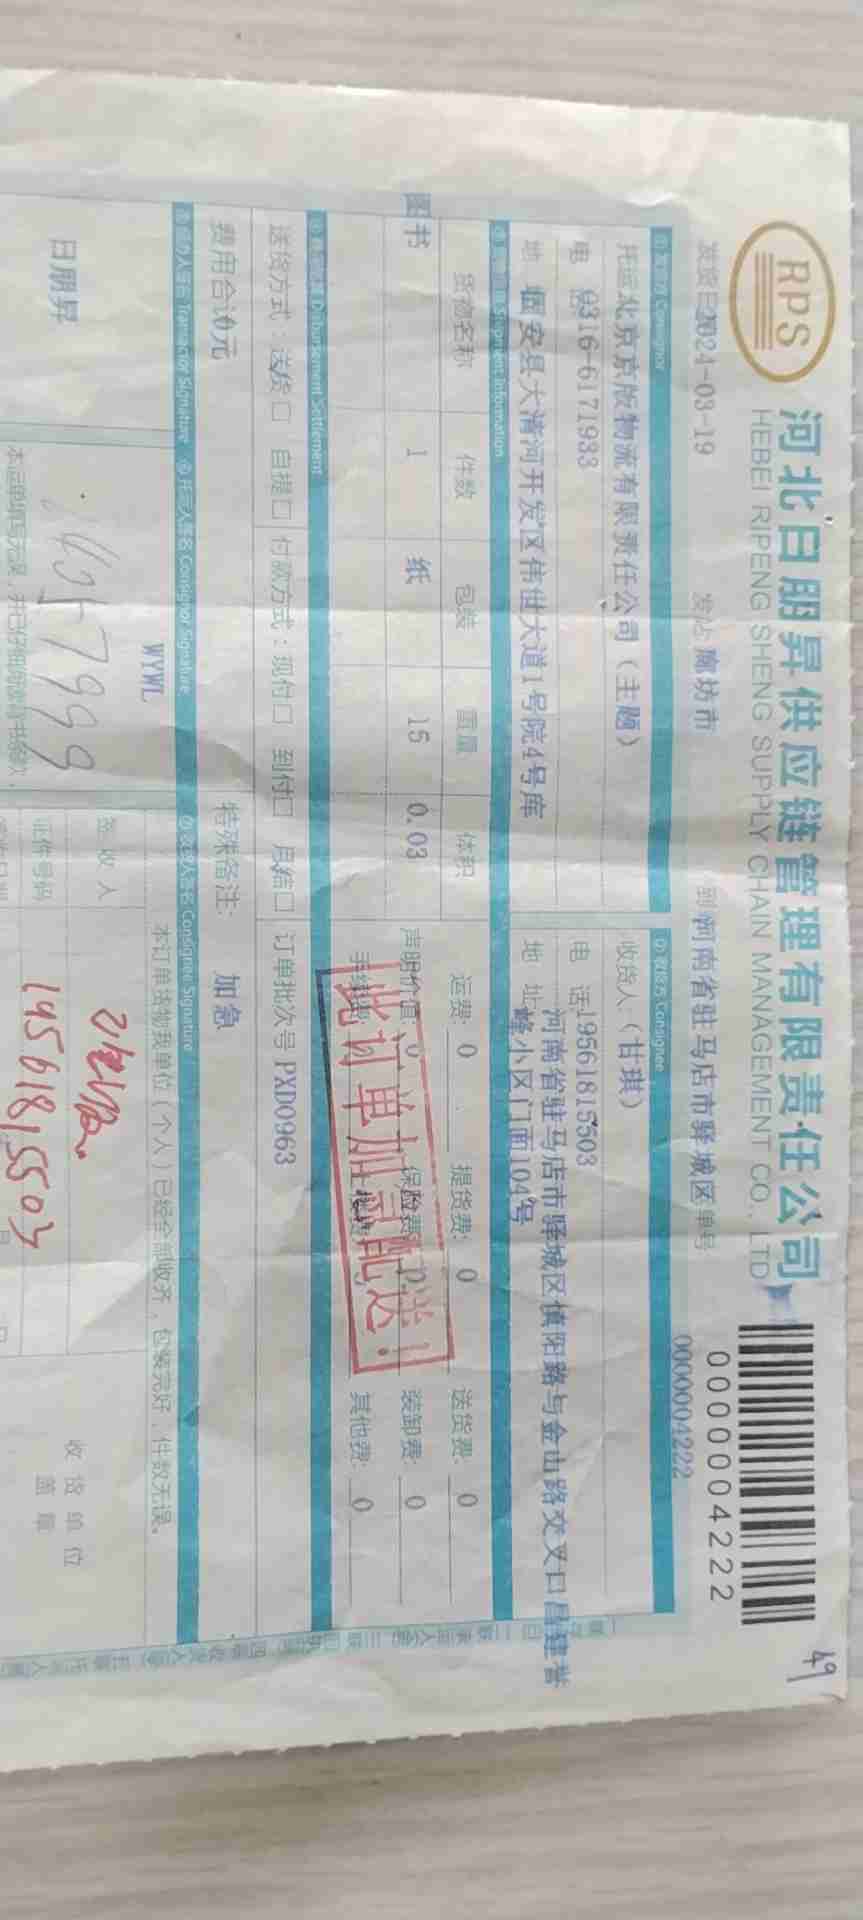 RPS
河北日朋昇供应链管理有限责任公司
HEBEI RIPENG SHENG SUPPLY CHAIN MANAGEMENT CO., LTD
0000004222
49
发货日 2024-03-19 发站 廊坊市 到 河南省驻马店市驿城区 单号 0000004222
① 发货方 Consignor
② 收货方 Consignee
托运 北京京版物流有限责任公司（主题）
收货人：（甘琪）
电 0316-6171933
电 话 19561815503
地 固安县大清河开发区伟世大道1号院4号库
地 址 河南省驻马店市驿城区慎阳路与金山路交叉口昌建誉
峰小区门面104号
Shipment Information
货物名称 件数 包装 重量 体积
运费: 0 提货费: 0 送货费: 0
图书 1 纸 15 0.03
声明价值: 0 保险费: 0 装卸费: 0
手续费: 其他费: 0
此订单加司配送！
Disbursement Settlement
送货方式：送货□ 自提□ 付款方式：现付□ 到付□ 月结□ 订单批次号 PXD0963
费用合计0元
特殊备注: 加急
Transactor Signature
⑥ 托运人签名 Consignor Signature
⑦ 收货人签名 Consignee Signature
日朋昇
WYWL
本订单货物我单位（个人）已经全部收齐，包装完好，件数无误。
签收人
收货单位
盖章
证件号码
19561815503